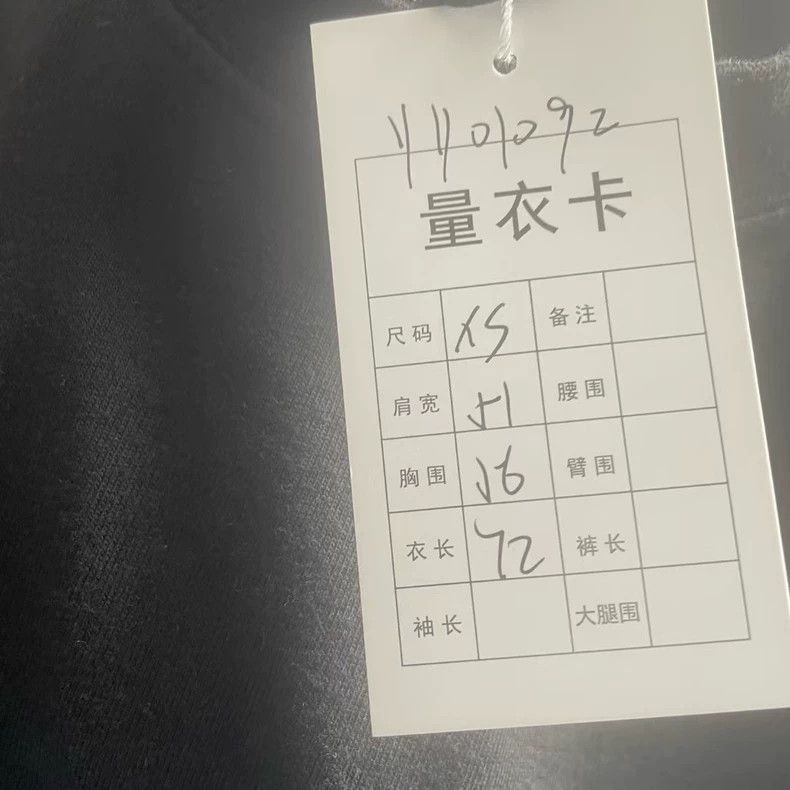 1101092
量衣卡
尺码 XS 备注
肩宽 51 腰围
胸围 56 臂围
衣长 72 裤长
袖长 大腿围